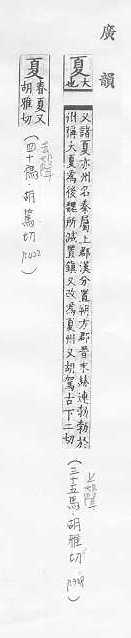 廣韻
夏 大也
又諸夏亦州名秦屬上郡漢分置朔方郡晉末赫連勃勃於
此僭稱大夏為後魏所滅置鎮又改為夏州又胡駕古下二切
(三十五馬·胡雅切
夏 春夏又
胡雅切
(四十禡·胡駕切 P422)